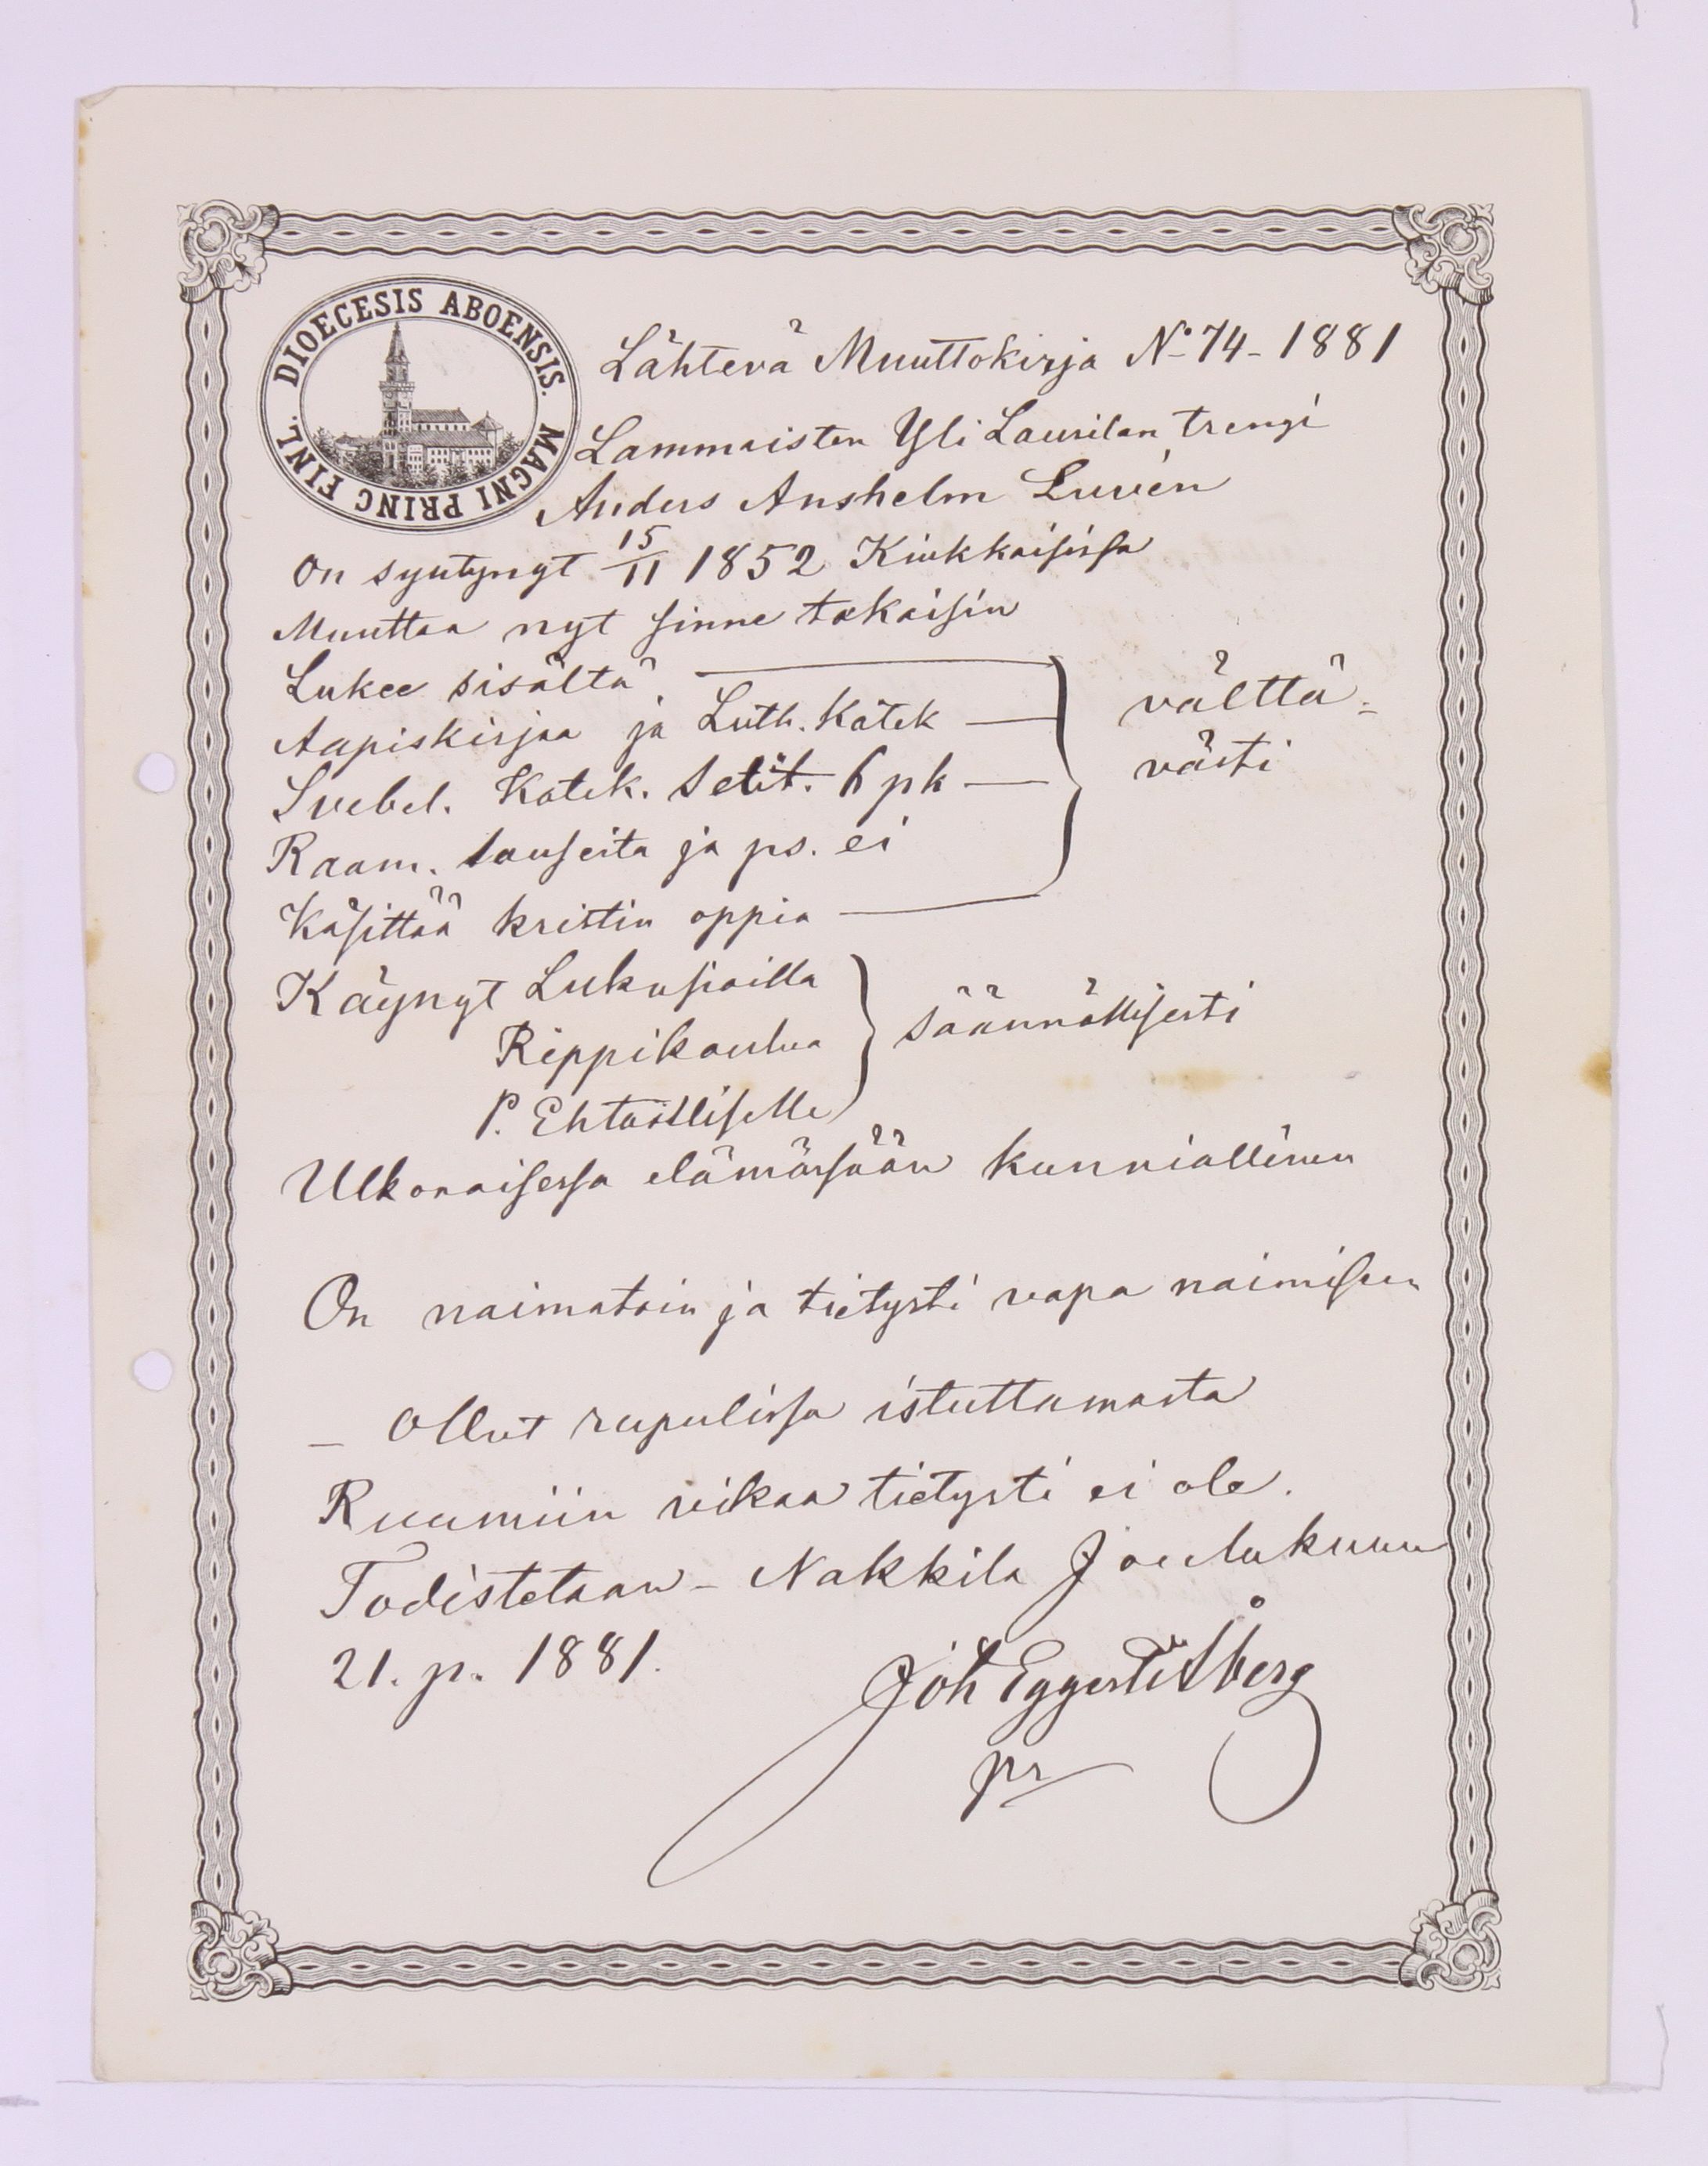 DIOECESIS ABOENSIS. MAGNI PRINC FINL.
Lähtevä Muuttokirja No 74 - 1881
Lammaisten Yli Laurilan trengi
Anders Anshelm Luvén
On syntynyt 15/11 1852 Kiukkaisissa
Muuttaa nyt sinne takaisin
Lukee sisältä
Aapiskirjaa ja Luth. Katek
Svebel. Katek. Selit. 6 pk
Raam. lauseita ja ps. ei
Käsittää kristin oppia
välttä-
västi
Käynyt Lukusioilla
Rippikoulua
P. Ehtoolliselle
säännöllisesti
Ulkonaisessa elämässään kunniallinen
On naimatoin ja tietysti vapa naimiseen
- Ollut rupulissa istuttamasta
Ruumiin vikaa tietysti ei ole.
Todistetaan - Nakkila Joulukuun
21. p. 1881.
Joh Eggert
pr